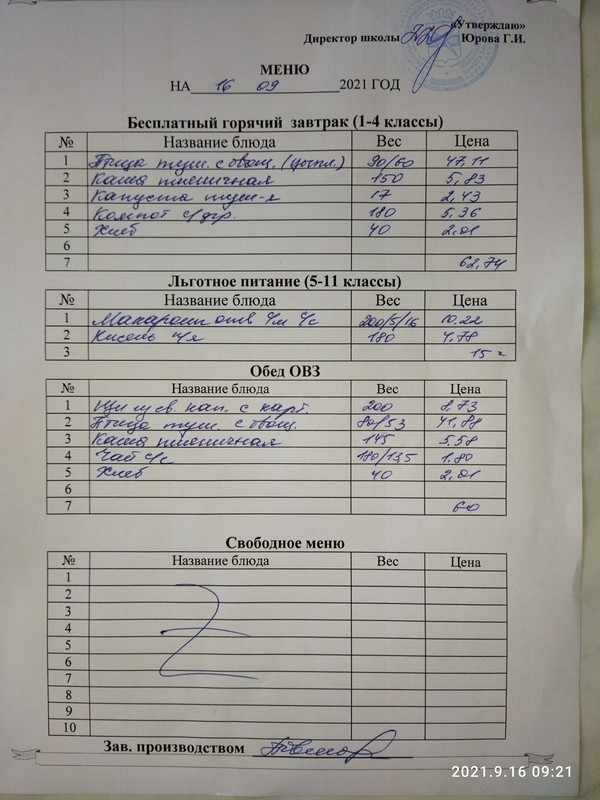 «Утверждаю»
Директор школы Юрова Г.И.
МЕНЮ
НА 16 09 2021 ГОД
Бесплатный горячий завтрак (1-4 классы)
№ Название блюда Вес Цена
1 Птица туш. с овощ. (цыпл.) 90/60 47,11
2 Каша пшеничная 150 5,83
3 Капуста туш-я 17 2,43
4 Компот с/фр. 180 5,36
5 Хлеб 40 2,01
6
7 62,74
Льготное питание (5-11 классы)
№ Название блюда Вес Цена
1 Макароны отв с/м с/с 200/5/16 10,22
2 Кисель 180 4,78
3 15
Обед ОВЗ
№ Название блюда Вес Цена
1 Щи из св. кап. с карт. 200 8,73
2 Птица туш. с овощ. 80/53 41,88
3 Каша пшеничная 145 5,58
4 Чай с/с 180/13,5 1,80
5 Хлеб 40 2,01
6
7 60
Свободное меню
№ Название блюда Вес Цена
1
2
3
4
5
6
7
8
9
10
Зав. производством
2021.9.16 09:21